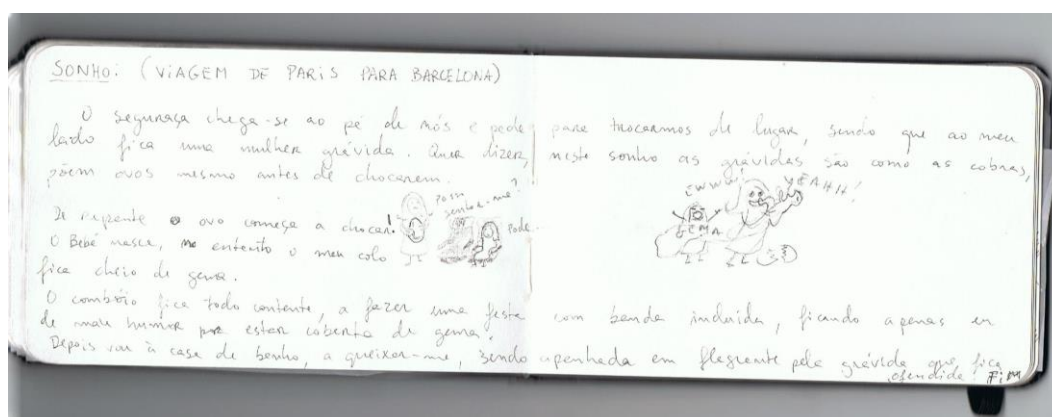 SONHO: (VIAGEM DE PARIS PARA BARCELONA)
O segurança chega-se ao pé de nós e pede para trocarmos de lugar, sendo que ao meu
lado fica uma mulher grávida. Quer dizer, neste sonho as grávidas são como as cobras,
põem ovos mesmo antes de chocarem.
EWWW! YEAHH!
GEMA
Posso sentar-me?
Pode.
De repente o ovo começa a chocar!
O Bebé nasce, no entanto o meu colo
fica cheio de gema.
O comboio fica todo contente, a fazer uma festa com banda incluída, ficando apenas eu
de mau humor por estar coberta de gema.
Depois vou à casa de banho, a queixar-me, sendo apanhada em flagrante pela grávida que fica
ofendida FIM